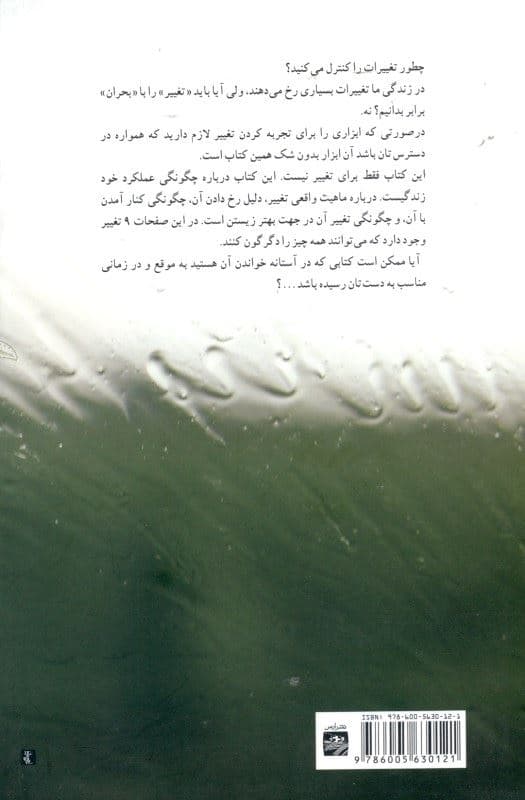 چطور تغییرات را کنترل می‌کنید؟
در زندگی ما تغییرات بسیاری رخ می‌دهند، ولی آیا باید «تغییر» را با «بحران»
برابر بدانیم؟ نه.
درصورتی که ابزاری را برای تجربه کردن تغییر لازم دارید که همواره در
دسترس تان باشد آن ابزار بدون شک همین کتاب است.
این کتاب فقط برای تغییر نیست. این کتاب درباره چگونگی عملکرد خود
زندگیست. درباره ماهیت واقعی تغییر، دلیل رخ دادن آن، چگونگی کنار آمدن
با آن، و چگونگی تغییر آن در جهت بهتر زیستن است. در این صفحات ۹ تغییر
وجود دارد که می‌توانند همه چیز را دگرگون کنند.
آیا ممکن است کتابی که در آستانه خواندن آن هستید به موقع و در زمانی
مناسب به دست تان رسیده باشد ...؟
ISBN: 978-600-5630-12-1
9 786005 630121